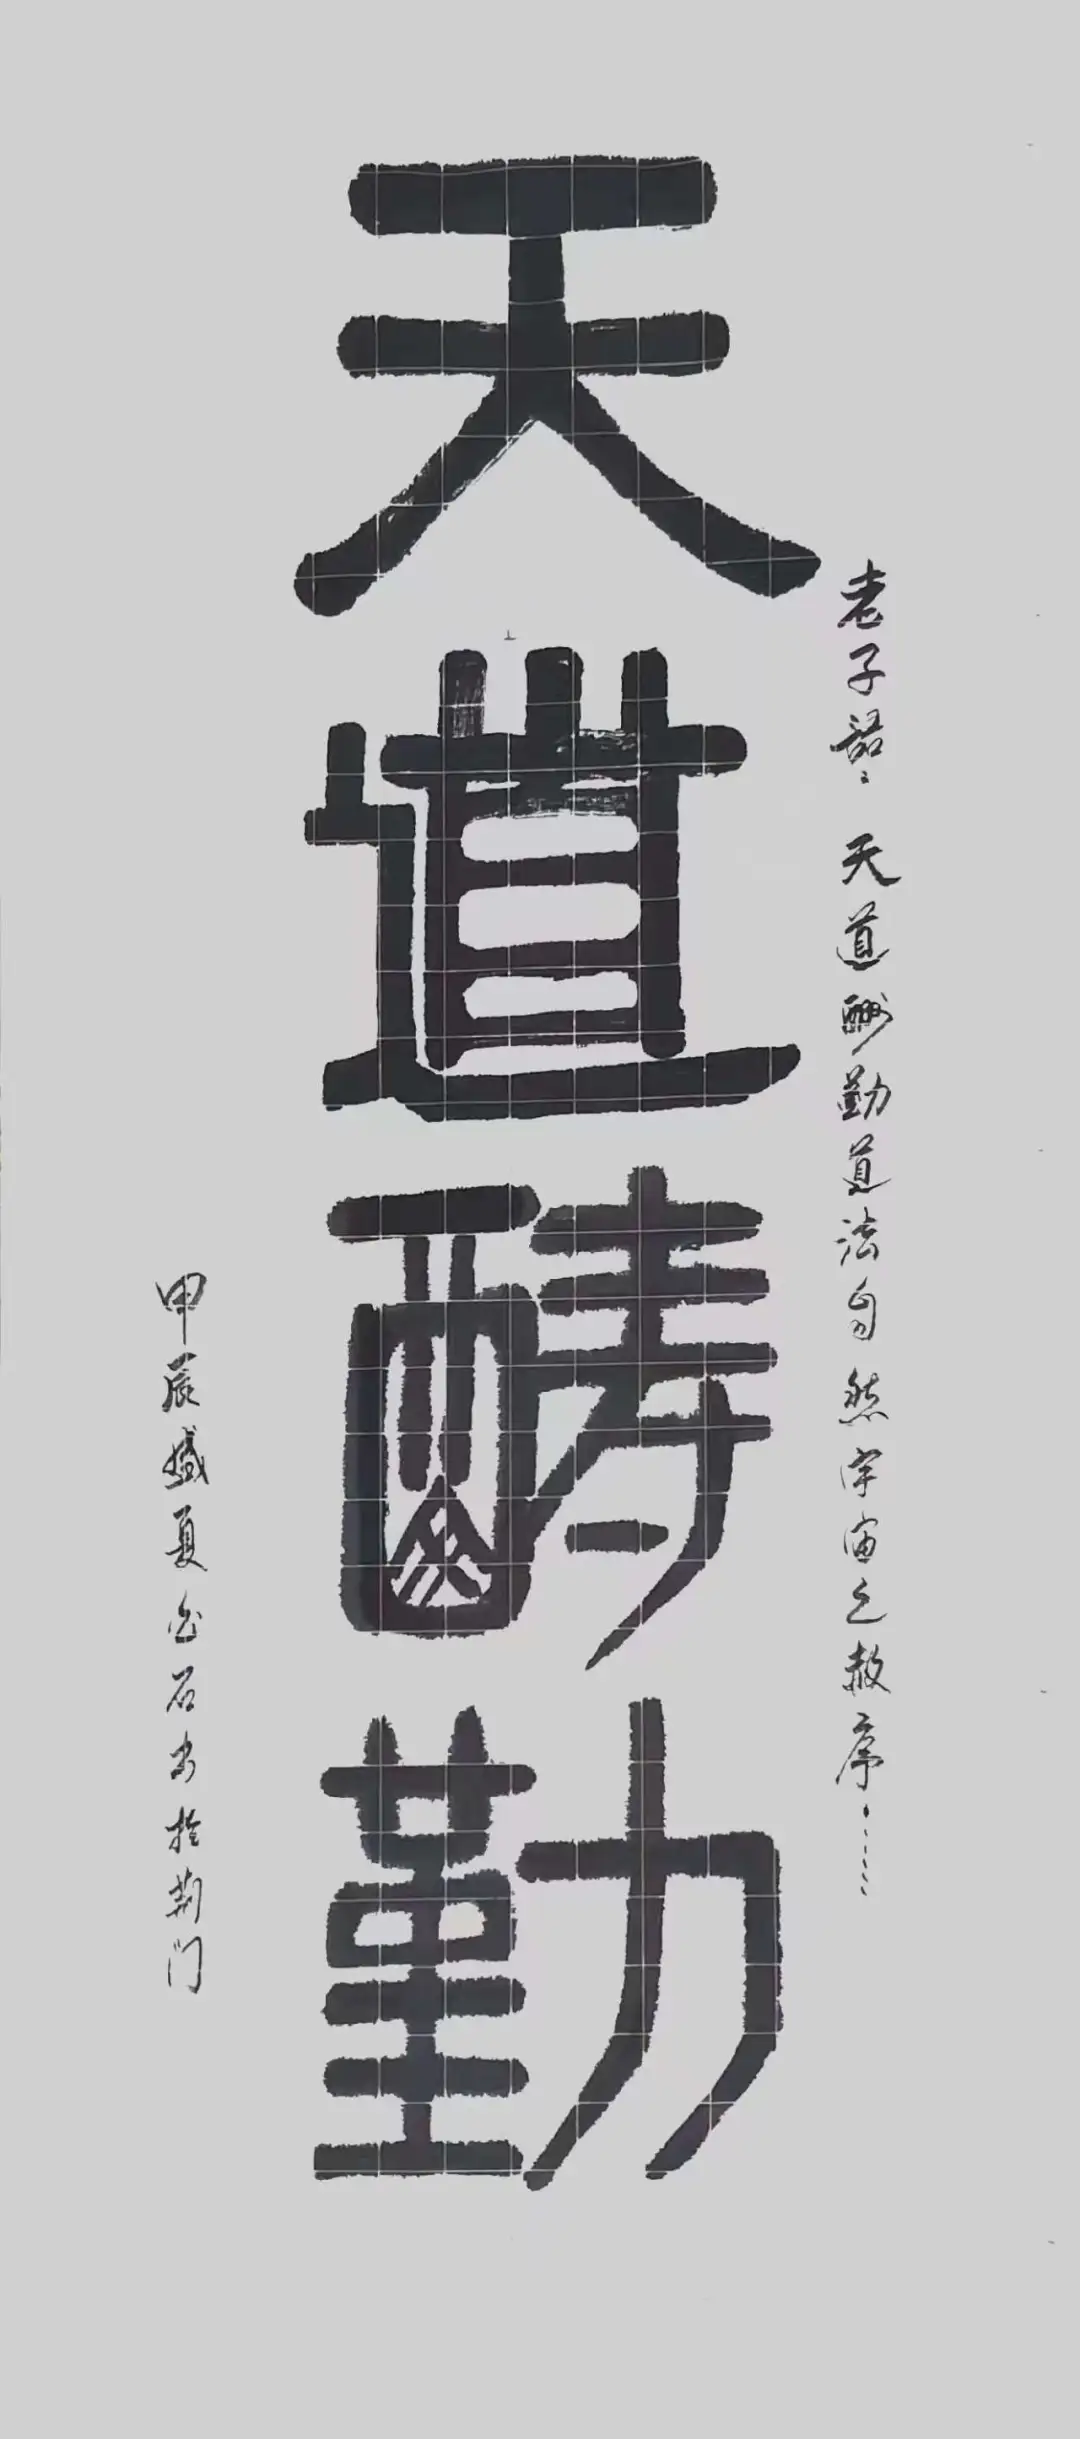 老子語：天道酬勤道法自然宇宙之序……
天道酬勤
甲辰盛夏石书於荆门